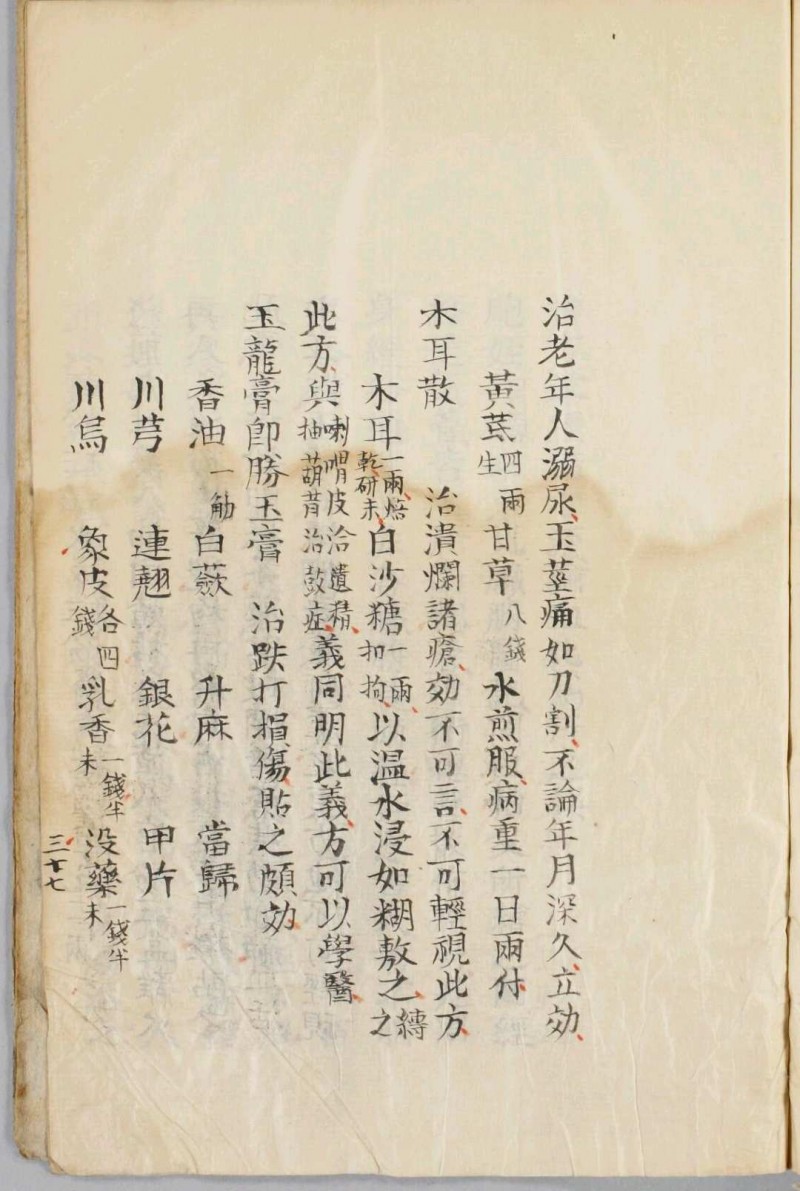 治老年人溺尿、玉莖痛如刀割、不論年月深久、立効、
黃芪四兩生 甘草八錢 水煎服、病重一日兩付、
木耳散 治潰爛諸瘡、効不可言、不可輕視此方、
木耳一兩、焙乾、研末、白沙糖一兩、和抅、以温水浸如糊敷之、縛之
此方、與喇嘛皮治遺精、抽葫芦治鼓症、義同明此義、方可以學醫、
玉龍膏卽勝玉膏 治跌打損傷、貼之頗効、
香油一觔 白蘞 升麻 當歸
川芎 連翹 銀花 甲片
川烏 象皮各四錢 乳香一錢半末 没藥一錢半末
三百七